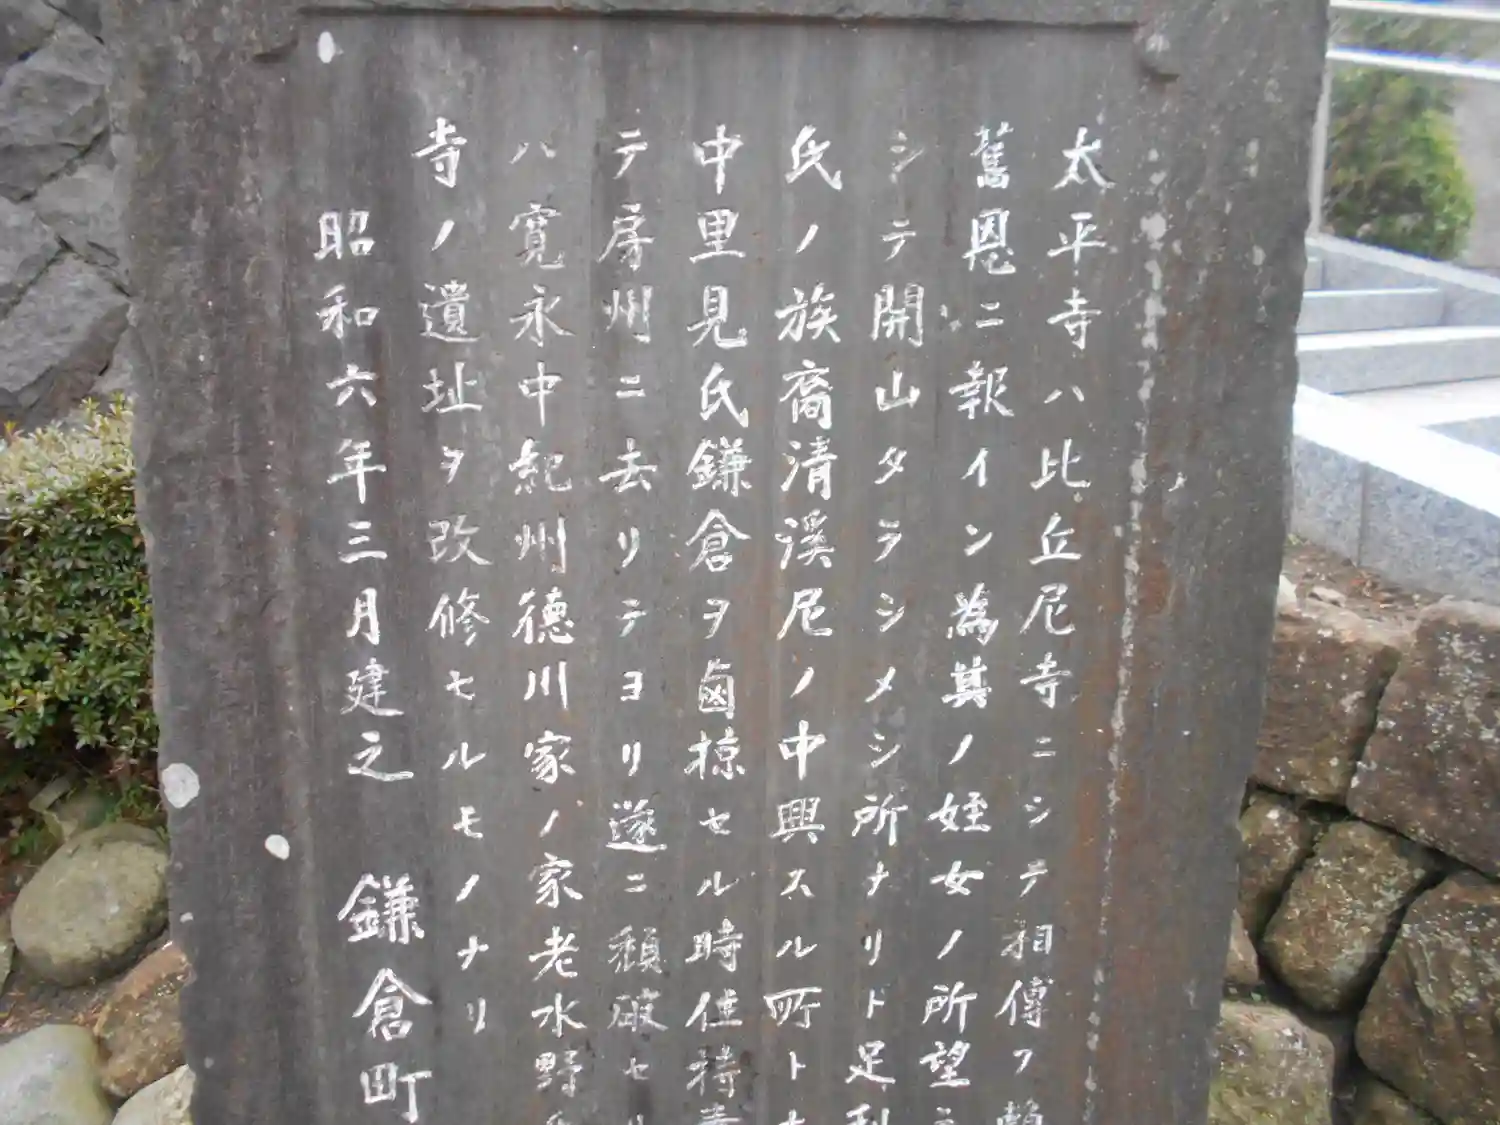 太平寺ハ比丘尼寺ニシテ相傳フ頼
舊恩ニ報イン為其ノ姪女ノ所望ニ
シテ開山タラシメシ所ナリト足利
氏ノ族裔清溪尼ノ中興スル所ト
中里見氏鎌倉ヲ鹵掠セル時住持
テ房州ニ去リテヨリ遂ニ頽破セリ
ハ寛永中紀州徳川家ノ家老水野
寺ノ遺址ヲ改修セルモノナリ
昭和六年三月建之 鎌倉町